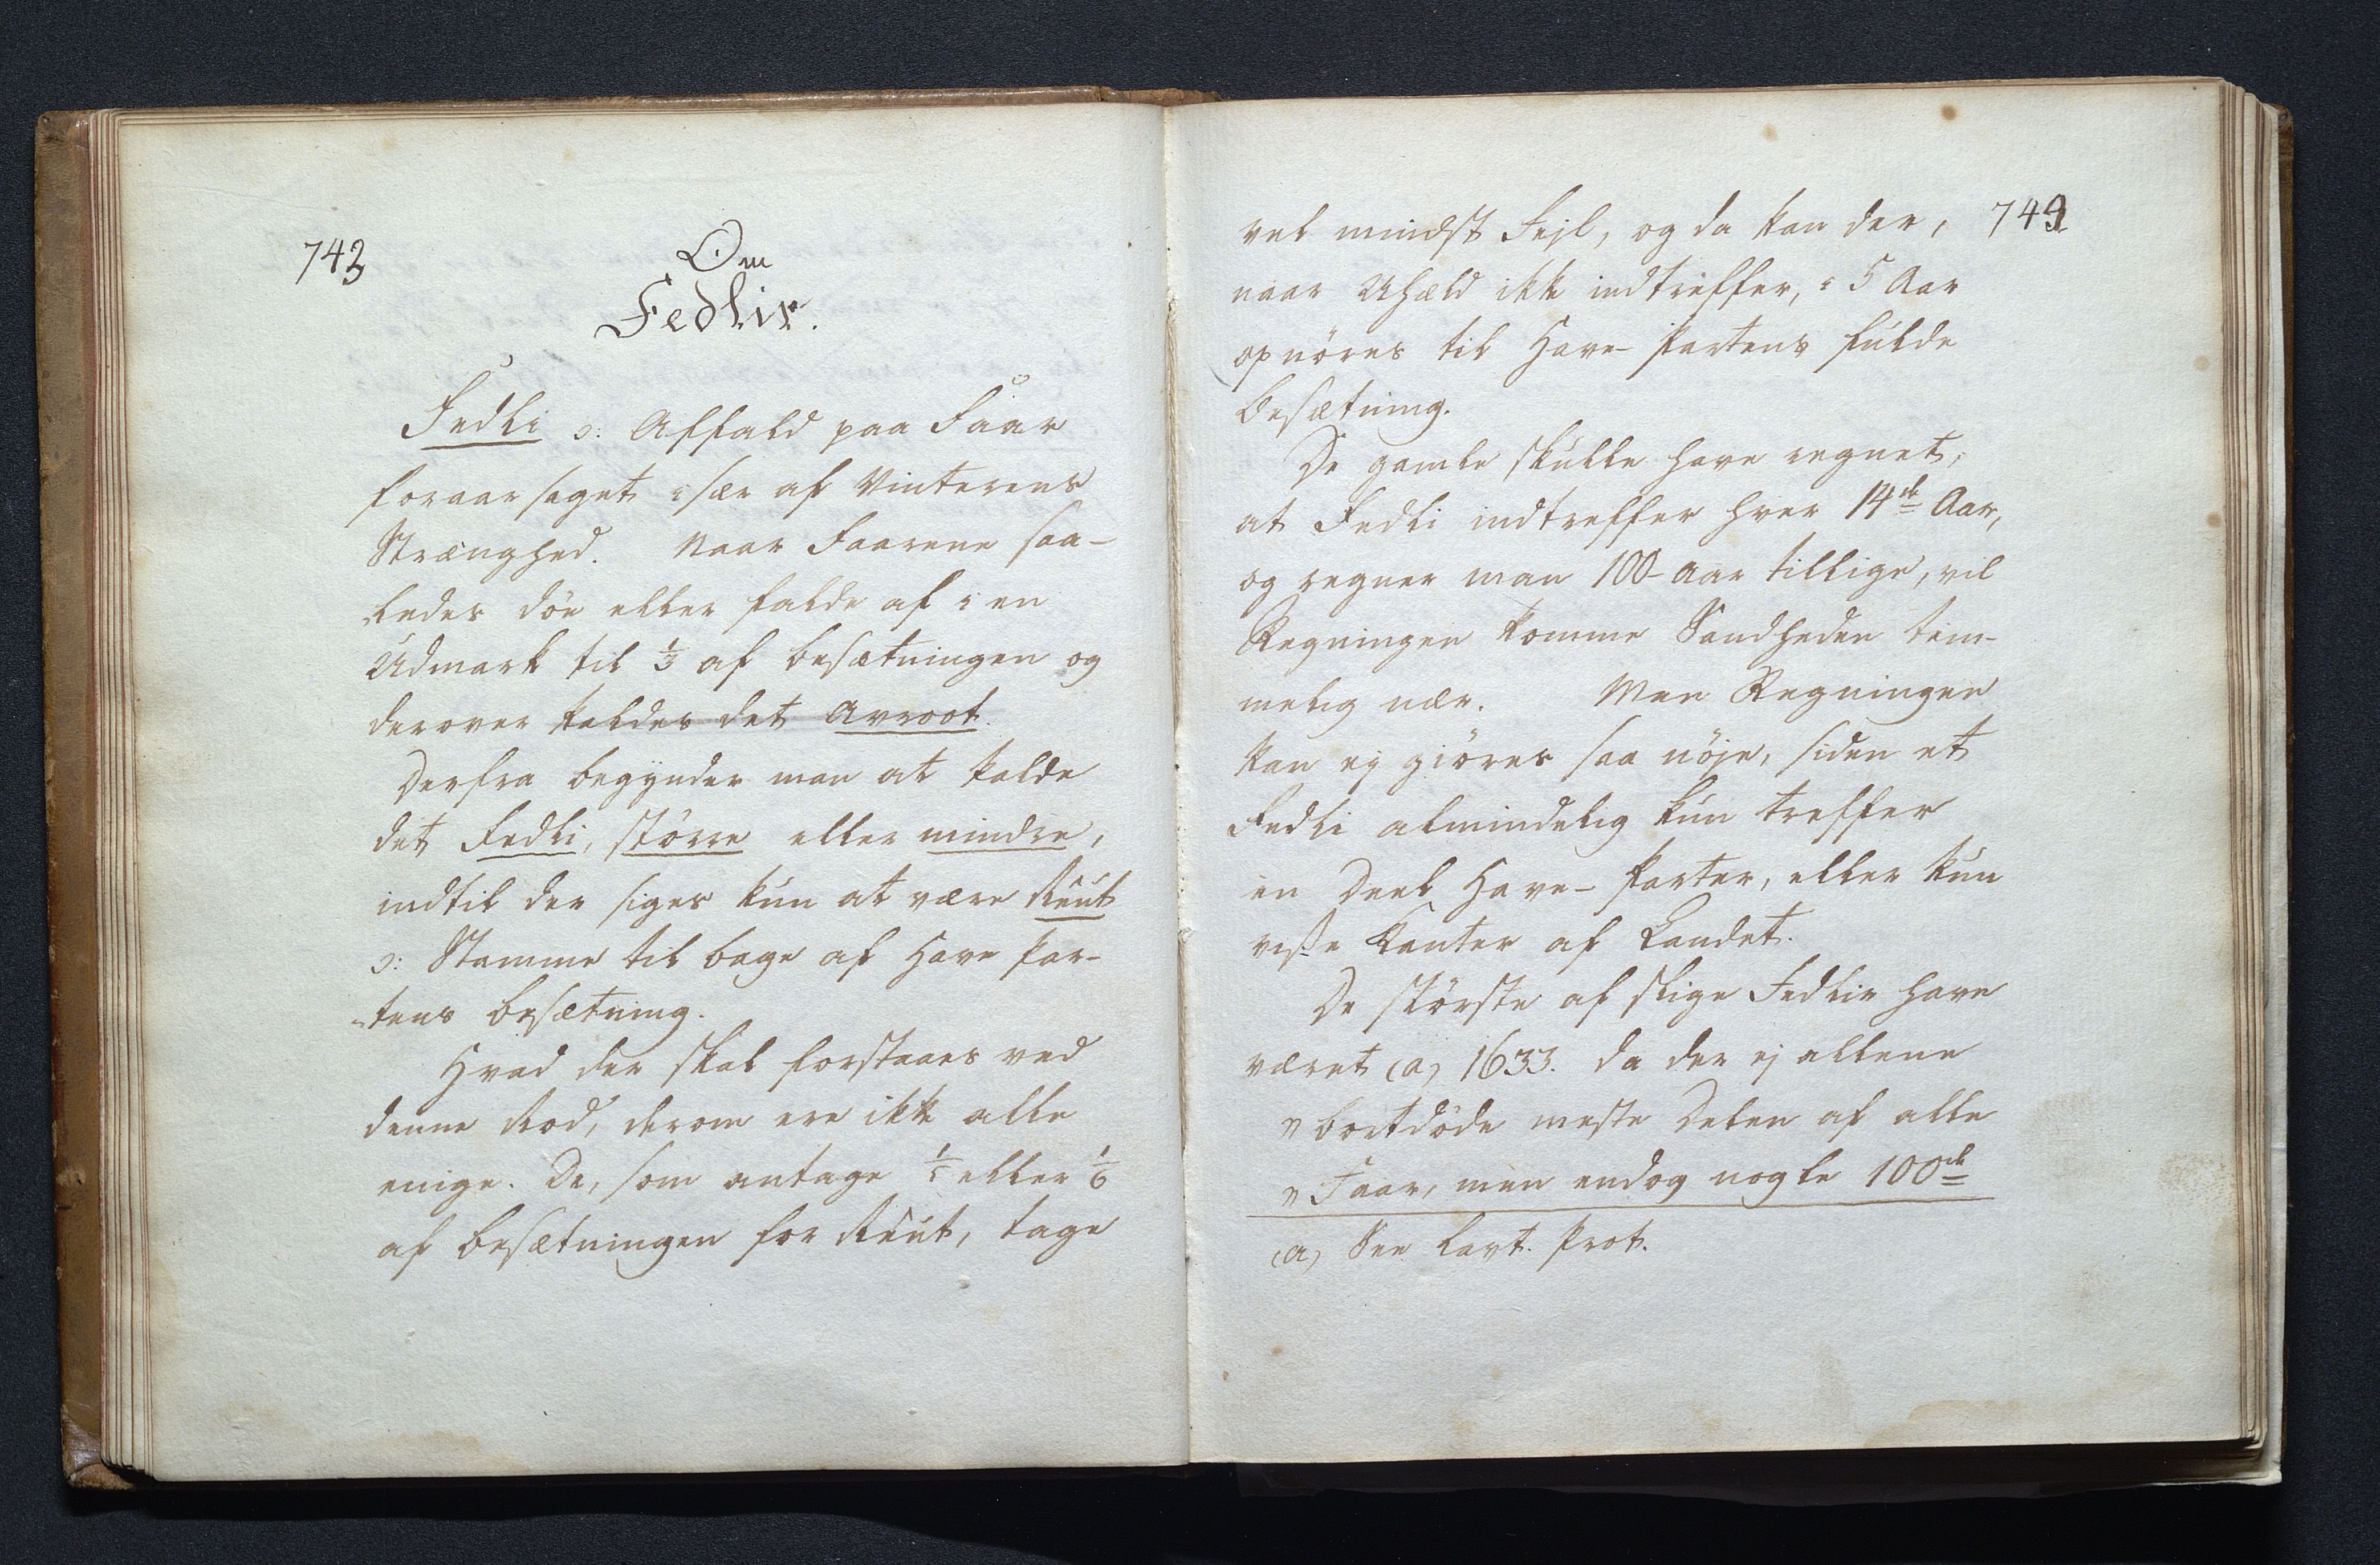 743
Om
Fedlir.
Fedli ɔ: Affald paa Faar
foraarsaget især af Vinterens
Strænghed. Naar Faarene saa-
ledes döe eller falde af i en
Udmark til ⅓ af besætningen og
derover kaldes det Avroot.
Derfra begynder man at kalde
det Fedli, större eller mindre,
indtil der siges kun at være
ɔ: Stamme til bage af Have Par-
tens besætning.
Hvad der skal forstaaes ved
denne Rod, derom ere ikke alle
enige. De, som antage ⅕ eller ⅙
af besætningen for, tage
vel mindst Fejl, og da kan der, 749
naar Uheld ikke indtreffer, i 5 Aar
opnöres til Have-Partens fulde
besætning.
De gamle skulle have regnet,
at Fedli indtreffer hver 14de Aar,
og regner man 100 Aar tillige, vil
Regningen komme Sandheden tem-
melig nær. Men Regningen
kan ej giöres saa nöje, siden et
Fedli almindelig kun treffer
en Deel Have-Parter, eller kun
visse Kanter af Landet.
De störste af slige Fedlir have
været (a) 1633. da der ej allene
"bortdöde meste Delen af alle
"Faar, men endog nogle 100de
(a) See Lavt. Prot.